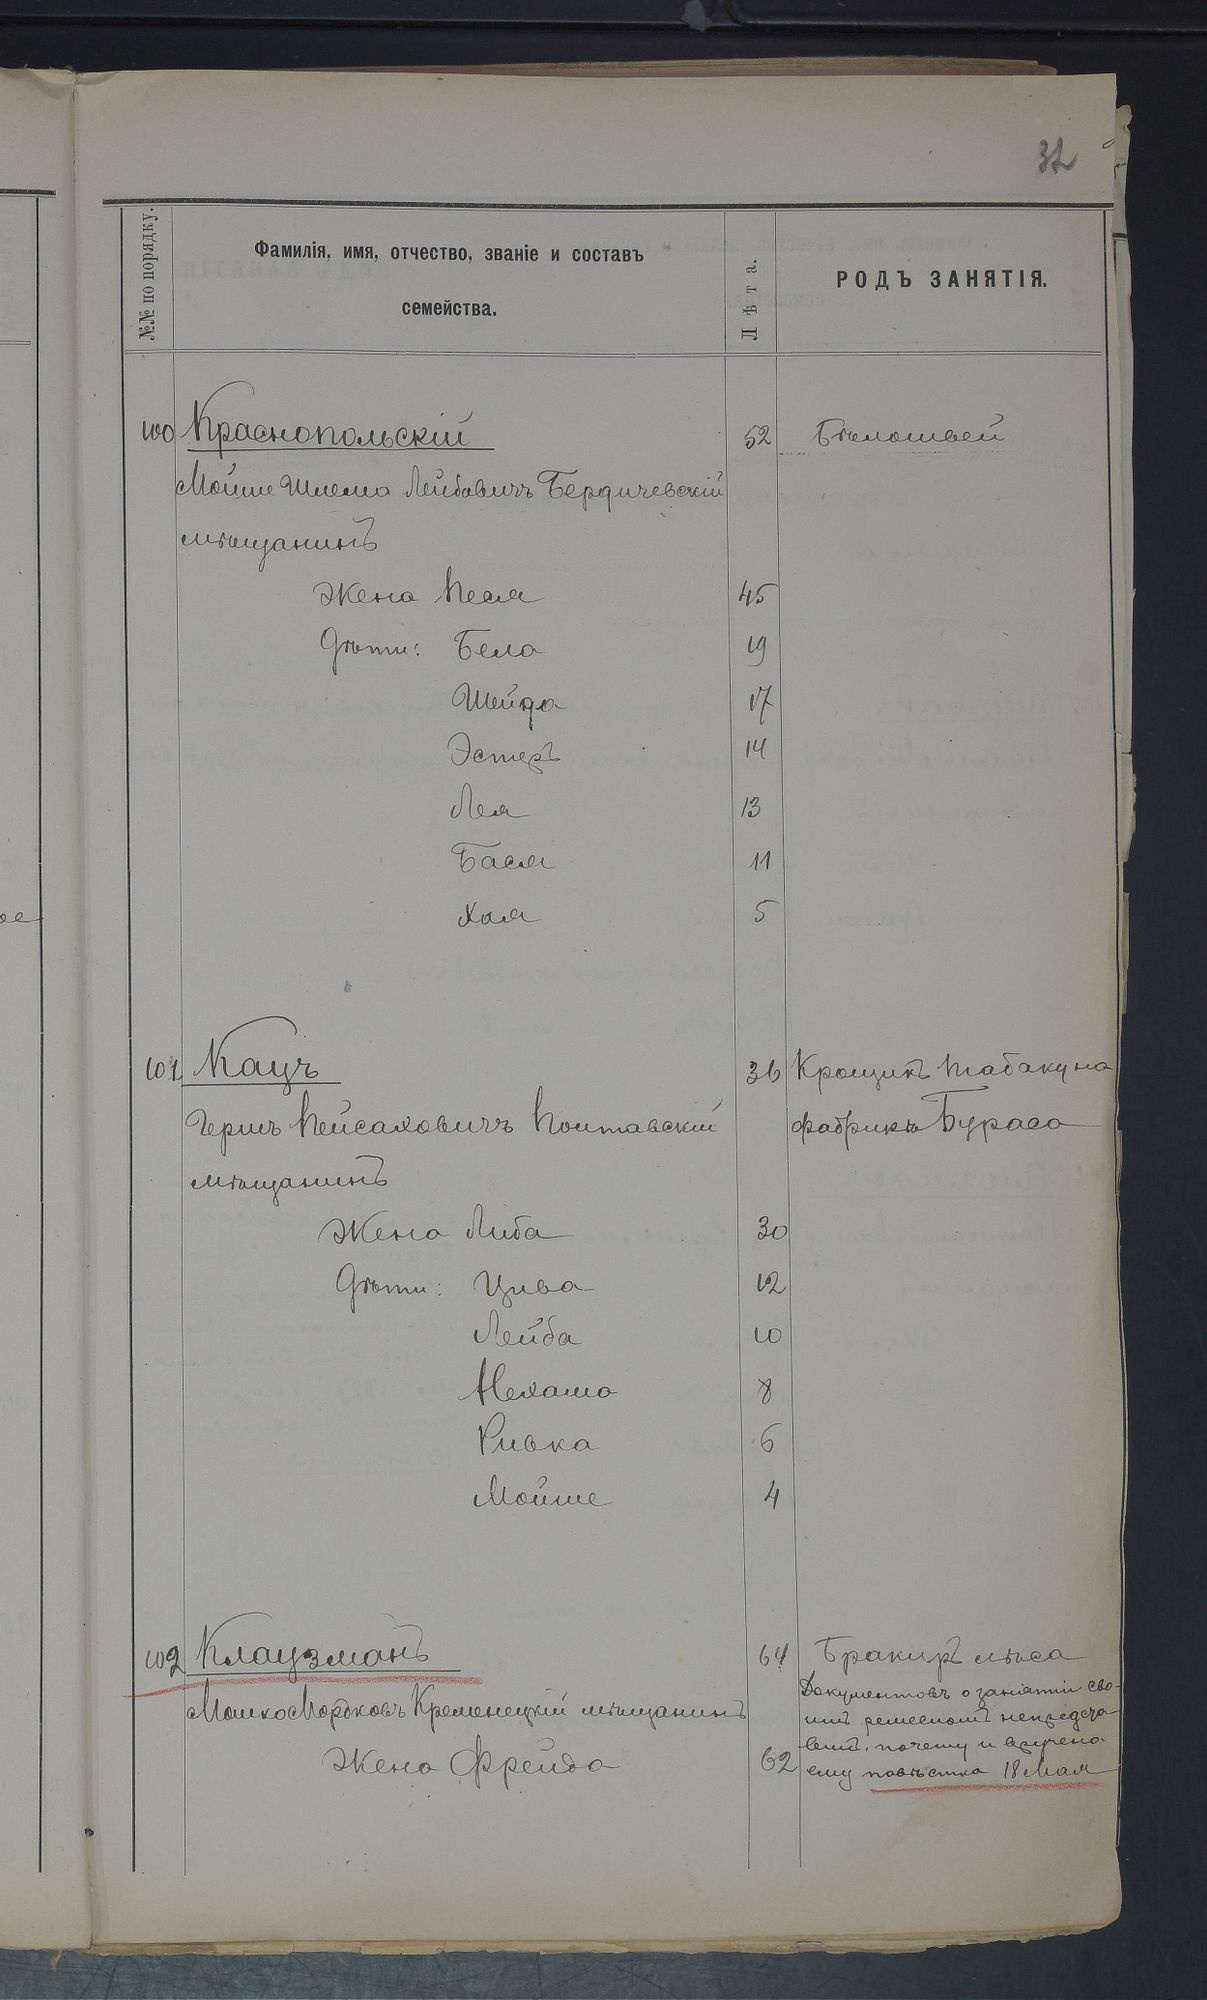 32
№№ по порядку.
Фамилія, имя, отчество, званіе и составъ
семейства.
Лѣта.
РОДЪ ЗАНЯТІЯ.
100 Краснопольскій 52 Бѣлошвей
Мойше Шлема Лейбовичъ Бердичевскій
мѣщанинъ
Жена Песя 45
Дѣти: Бела 19
Шейда 17
Эстеръ 14
Лея 13
Бася 11
Хая 5
101 Кацъ 36 Крощикъ табаку на
Гершъ Пейсаховичъ Полтавскій фабрикѣ Бураса
мѣщанинъ
Жена Либа 30
Дѣти: Цива 12
Лейба 10
Нехама 8
Ривка 6
Мойше 4
102 Клаузманъ 64 Бракиръ лѣса
Мошко Мордковъ Кременецкій мѣщанинъ
Жена Фрейда 62
Документовъ о занятіи сво-
имъ ремесломъ непредста-
вилъ, почему и вручена
ему повѣстка 18 Мая
ое